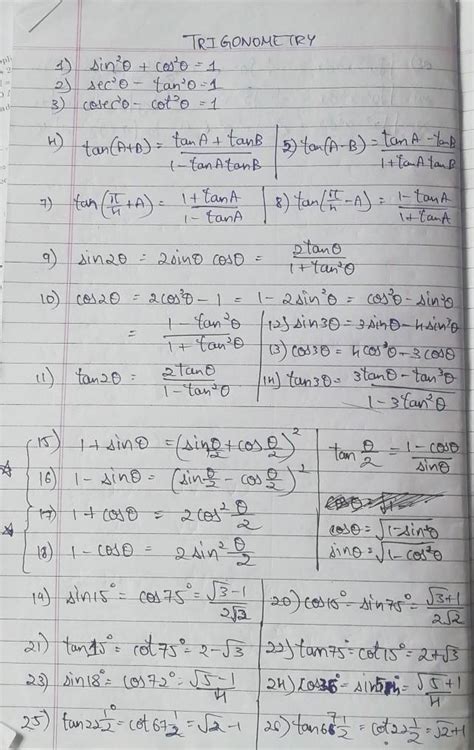 TRIGONOMETRY
1) sin²θ + cos²θ = 1
2) sec²θ - tan²θ = 1
3) cosec²θ - cot²θ = 1
4) tan(A+B) = (tanA + tanB)/(1 - tanA tanB) 5) tan(A-B) = (tanA - tanB)/(1 + tanA tanB)
7) tan(π/4 + A) = (1 + tanA)/(1 - tanA) 8) tan(π/4 - A) = (1 - tanA)/(1 + tanA)
9) sin2θ = 2sinθ cosθ = 2tanθ/(1 + tan²θ)
10) cos2θ = 2cos²θ - 1 = 1 - 2sin²θ = cos²θ - sin²θ
= (1 - tan²θ)/(1 + tan²θ) 12) sin3θ = 3sinθ - 4sin³θ
13) cos3θ = 4cos³θ - 3cosθ
11) tan2θ = 2tanθ/(1 - tan²θ) 14) tan3θ = (3tanθ - tan³θ)/(1 - 3tan²θ)
15) 1 + sinθ = (sin θ/2 + cos θ/2)² tan θ/2 = (1 - cosθ)/sinθ
16) 1 - sinθ = (sin θ/2 - cos θ/2)²
17) 1 + cosθ = 2cos² θ/2 cosθ = √(1 - sin²θ)
18) 1 - cosθ = 2sin² θ/2 sinθ = √(1 - cos²θ)
19) sin15° = cos75° = (√3 - 1)/2√2 20) cos15° = sin75° = (√3 + 1)/2√2
21) tan15° = cot75° = 2 - √3 22) tan75° = cot15° = 2 + √3
23) sin18° = cos72° = (√5 - 1)/4 24) cos36° = sin54° = (√5 + 1)/4
25) tan22 1/2° = cot67 1/2 = √2 - 1 26) tan67 1/2° = cot22 1/2° = √2 + 1